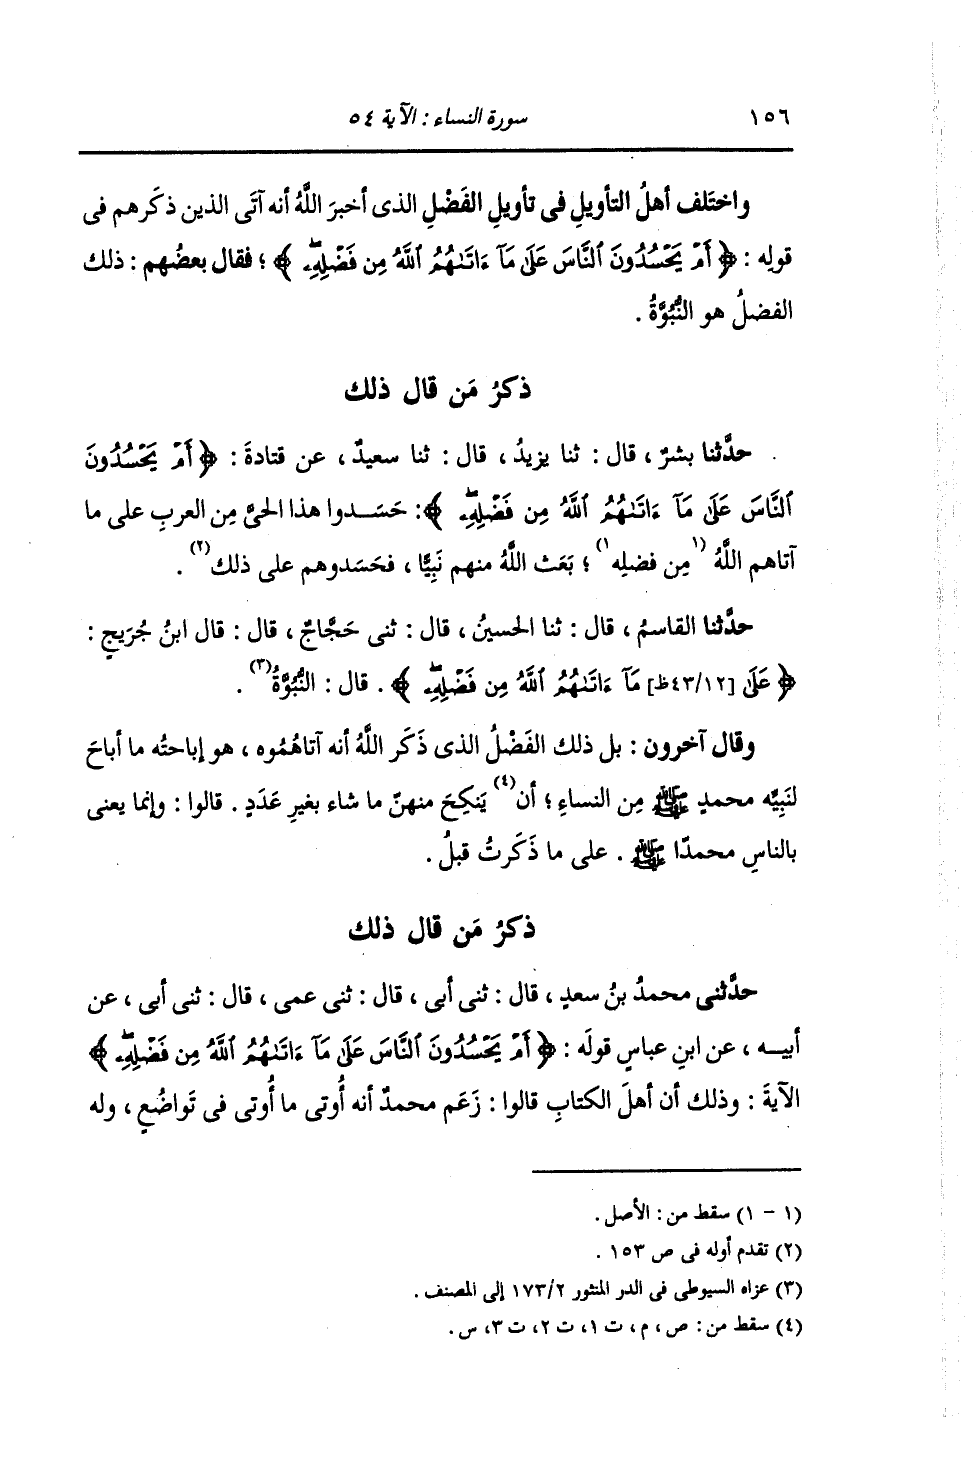 ١٥٦ سورة النساء : الآية ٥٤
واختَلف أهلُ التأويلِ فى تأويلِ الفَضْلِ الذى أخبرَ اللَّهُ أنه آتَى الذين ذكَرهم فى
قولِه : ﴿ أَمْ يَحْسُدُونَ ٱلنَّاسَ عَلَىٰ مَآ ءَاتَىٰهُمُ ٱللَّهُ مِن فَضْلِهِۦۖ ﴾ ؛ فقال بعضُهم : ذلك
الفضلُ هو النُّبُوَّةُ .
ذكرُ مَن قال ذلك
حدَّثنا بشرٌ ، قال : ثنا يزيدُ ، قال : ثنا سعيدٌ ، عن قتادةَ : ﴿ أَمْ يَحْسُدُونَ
ٱلنَّاسَ عَلَىٰ مَآ ءَاتَىٰهُمُ ٱللَّهُ مِن فَضْلِهِۦۖ ﴾ : حَسَـدوا هذا الحىَّ مِن العربِ على ما
آتاهم اللَّهُ (١ مِن فضلِه ١) ؛ بَعَث اللَّهُ منهم نَبِيًّا ، فحَسَدوهم على ذلك (٢) .
حدَّثنا القاسمُ ، قال : ثنا الحسينُ ، قال : ثنى حَجَّاجٌ ، قال : قال ابنُ جُرَيجٍ :
﴿ عَلَىٰ [٤٣/١٢ظ] مَآ ءَاتَىٰهُمُ ٱللَّهُ مِن فَضْلِهِۦۖ ﴾ . قال : النُّبُوَّةُ (٣) .
وقال آخرون : بل ذلك الفَضْلُ الذى ذَكَر اللَّهُ أنه آتاهُمُوه ، هو إباحتُه ما أباحَ
لنَبِيِّه محمدٍ ﷺ مِن النساءِ ؛ أن (٤) يَنكِحَ منهنّ ما شاء بغيرِ عَدَدٍ . قالوا : وإنما يعنى
بالناسِ محمدًا ﷺ . على ما ذَكَرتُ قبلُ .
ذكرُ مَن قال ذلك
حدَّثنى محمدُ بنُ سعدٍ ، قال : ثنى أبى ، قال : ثنى عمى ، قال : ثنى أبى ، عن
أبيـه ، عن ابنِ عباسٍ قولَه : ﴿ أَمْ يَحْسُدُونَ ٱلنَّاسَ عَلَىٰ مَآ ءَاتَىٰهُمُ ٱللَّهُ مِن فَضْلِهِۦۖ ﴾
الآيةَ : وذلك أن أهلَ الكتابِ قالوا : زَعَم محمدٌ أنه أُوتى ما أُوتى فى تَواضُعٍ ، وله
(١ - ١) سقط من : الأصل .
(٢) تقدم أوله فى ص ١٥٣ .
(٣) عزاه السيوطى فى الدر المنثور ١٧٣/٢ إلى المصنف .
(٤) سقط من : ص ، م ، ت ١، ت ٢، ت ٣، س .